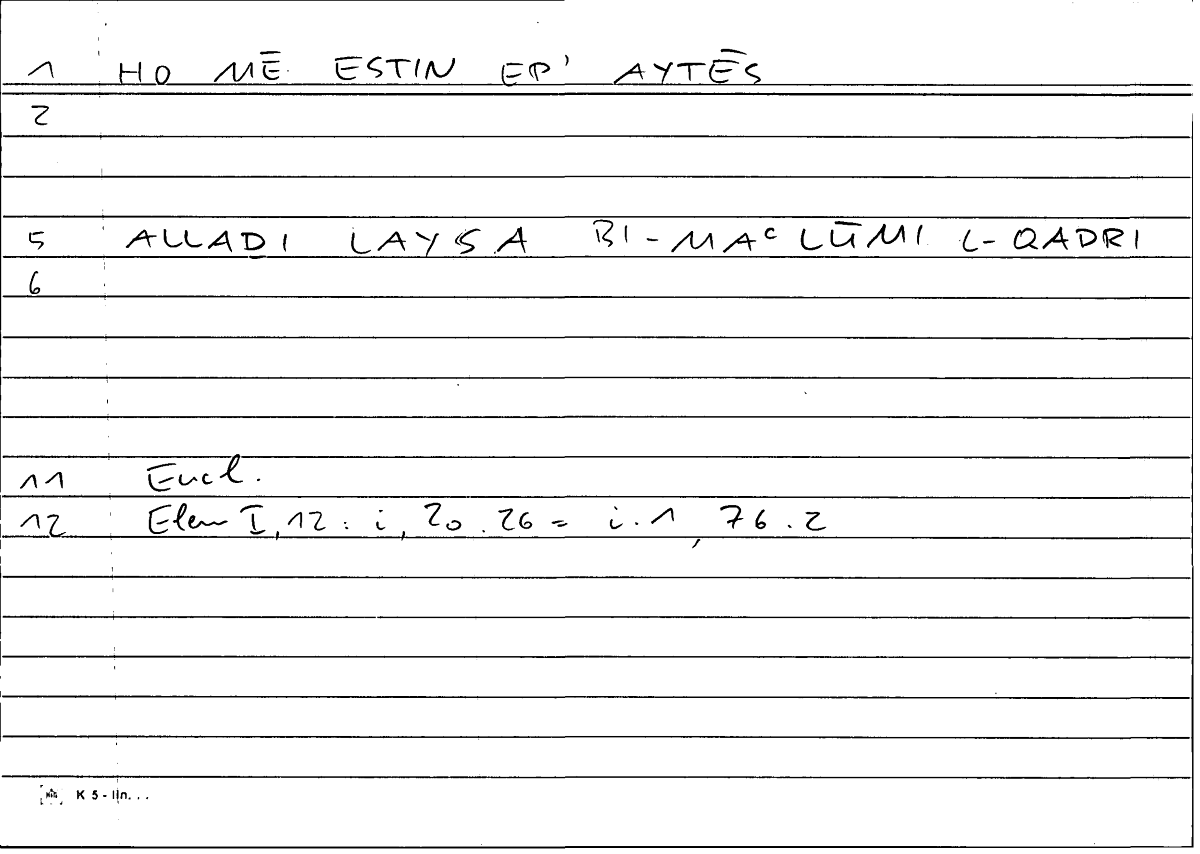 1 HO MĒ ESTIN EP' AYTĒS
2
5 ALLAḎI LAYSA BI-MAᶜLŪMI L-QADRI
6
11 Eucl.
12 Elem I,12 : i, 20.26 = i.1, 76.2
K 5 - lin. . .